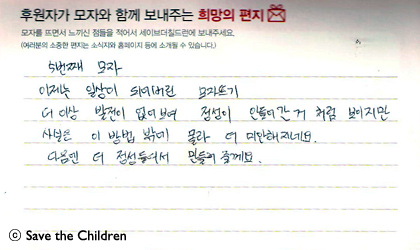 후원자가 모자와 함께 보내주는 희망의 편지
모자를 뜨면서 느끼신 점들을 적어서 세이브더칠드런에 보내주세요.
(여러분의 소중한 편지는 소식지와 홈페이지 등에 소개될 수 있습니다.)
5번째 모자
이제는 일상이 되어버린 모자뜨기
더 이상 발전이 없어보여 정성이 안들어간 거 처럼 보이지만
사실은 이 방법 밖에 몰라 더 미안해지네요.
다음엔 더 정성들여서 만들어 줄께요.
ⓒ Save the Children